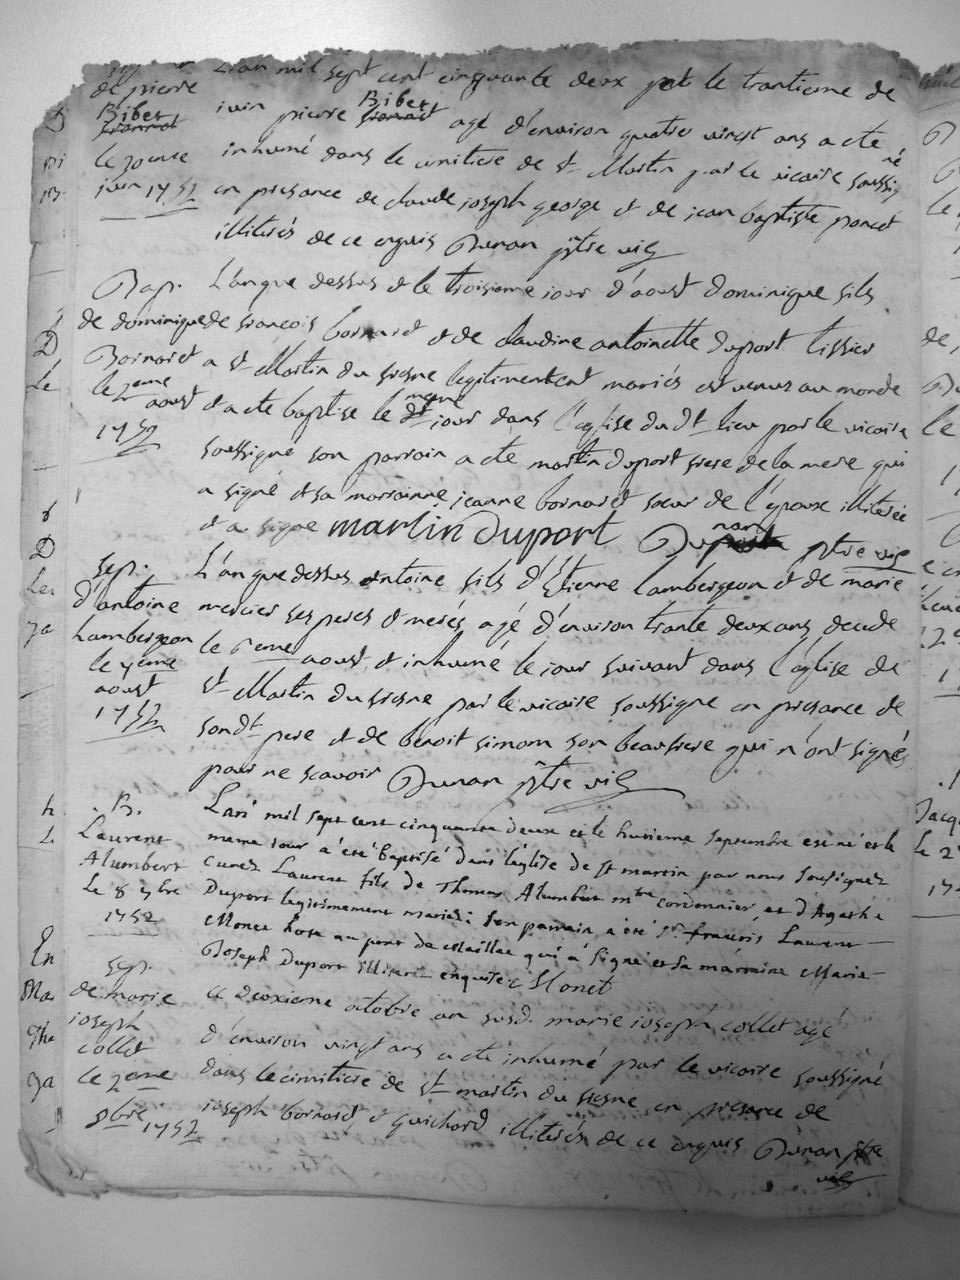 de pierre
Bibet
le 30eme
juin 1752
L'an mil sept cent cinquante deux et le trantieme de
juin pierre Bibet agé d'environ quatre vingt ans a eté
inhumé dans le cimitiere de st Martin par le vicaire soussigné
en presance de claude joseph george et de jean baptiste poncet
illiterés de ce enquis Dunan ptre vic
Bap.
de dominique
Bornaret
le 3eme
aoust
1752
L'an que dessus et le troisieme jour d'aoust dominique fils
de francois bornaret et de claudine antoinette duport tissier
a st Martin du fresne legitimement mariés est venus au monde
et a eté baptisé le meme jour dans l'eglise du dt lieu par le vicaire
soussigné son parrain a eté martin duport frere de la mere qui
a signé et sa marrainne jeanne bornaret soeur de l'epoux illiterée
et a signe martin duport Dunan ptre vic
sep.
d'antoine
Lambergeon
le 7eme
aoust
1752
L'an que dessus antoine fils d'Etienne Lambergeon et de marie
mercier ses peres et meres agé d'environ trante deux ans decedé
le 6eme aoust et inhumé le jour suivant dans l'aglise de
st Martin du fresne par le vicaire soussigne en presance de
son dt pere et de benoit simom son beaufrere qui n'ont signés
pour ne scavoir Dunan ptre vic
B.
Laurent
Alumbert
Le 8 7bre
1752
L'an mil sept cent cinquante deux et le huitieme septembre est né et le
meme jour a été baptisé dans l'eglise de st martin par nous sousignez
Curez Laurent fils de Thomas Alumbert mtre cordonnier, et d'Agathe
Duport legitimement mariez: son parrain a été sr. francois Laurent
Monet hote au pont de Maillac qui a signé et sa marraine Marie
Joseph Duport illiteré enquise Monet
sep.
de marie
joseph
collet
le 2eme
8bre 1752
Le deuxieme octobre an susd. marie joseph collet agé
d'environ vingt ans a eté inhumé par le vicaire soussigné
dans le cimitiere de st martin du fresne en presance de
joseph bornaret et Guichard illiterés de ce enquis Dunan ptre
vic